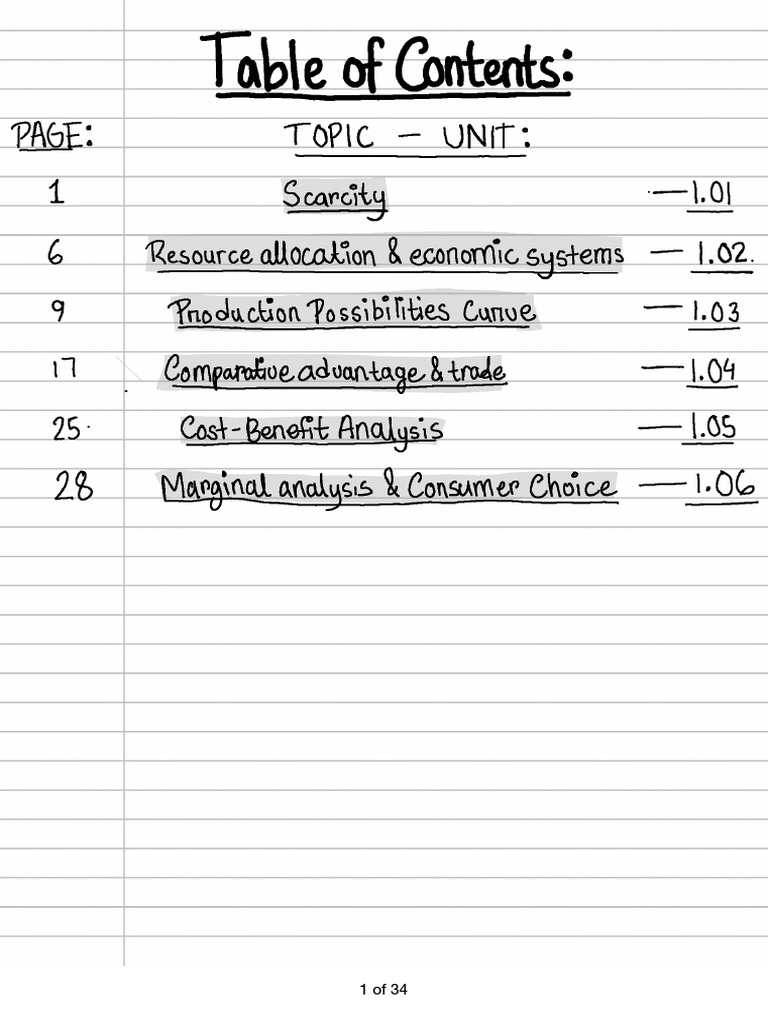 Table of Contents:
PAGE: TOPIC — UNIT:
1 Scarcity — 1.01
6 Resource allocation & economic systems — 1.02.
9 Production Possibilities Curve — 1.03
17 Comparative advantage & trade — 1.04
25. Cost-Benefit Analysis — 1.05
28 Marginal analysis & Consumer Choice — 1.06
1 of 34